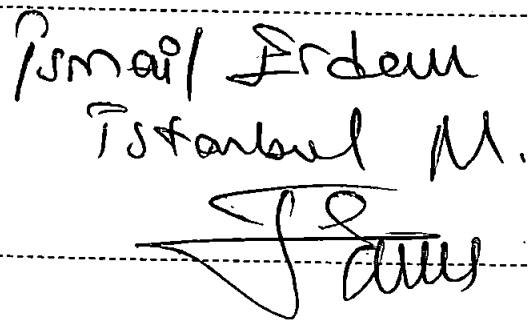 İsmail Erdem
İstanbul M.